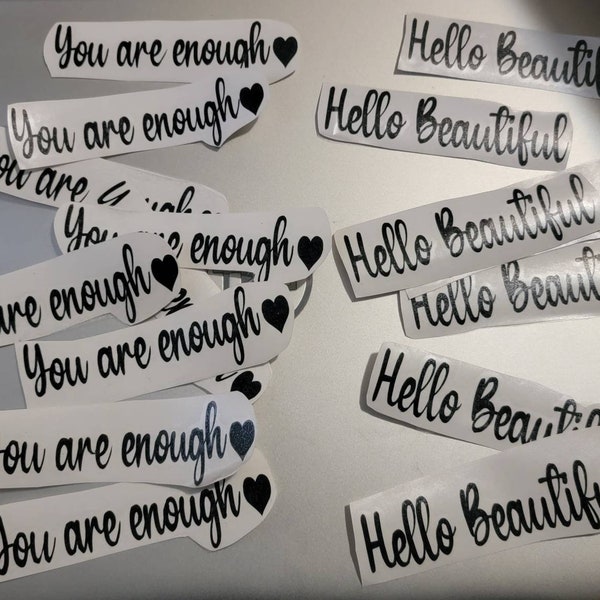 You are enough♥
You are enough♥
You are
You are enough♥
are enough♥
You are enough♥
You are enough♥
You are enough♥
Hello Beautiful
Hello Beautiful
Hello Beautiful
Hello Beautiful
Hello Beautiful
Hello Beautiful